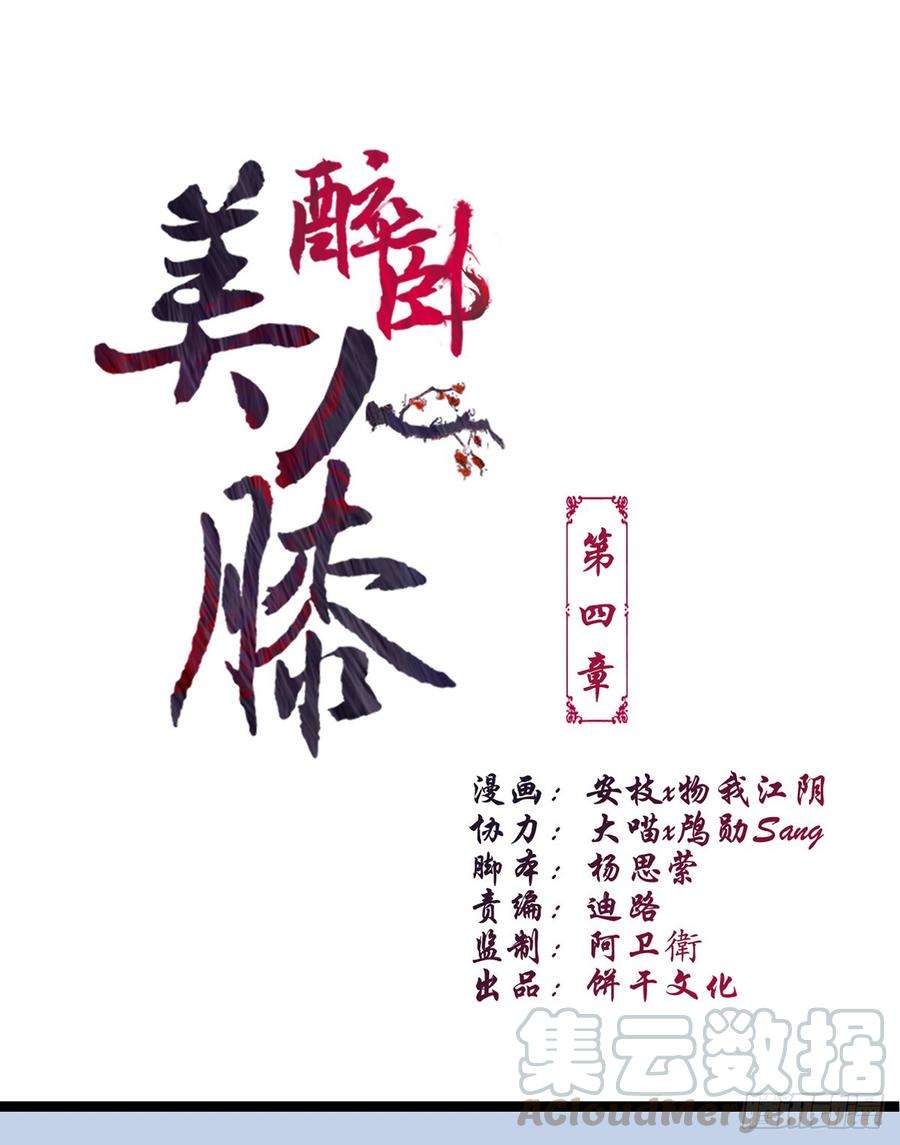 醉卧
美人膝
第四章
漫画：安枝x物我江阴
协力：大喵x鸬勋Sang
脚本：杨思萦
责编：迪路
监制：阿卫衛
出品：饼干文化
集云数据
ACloudMerge.com